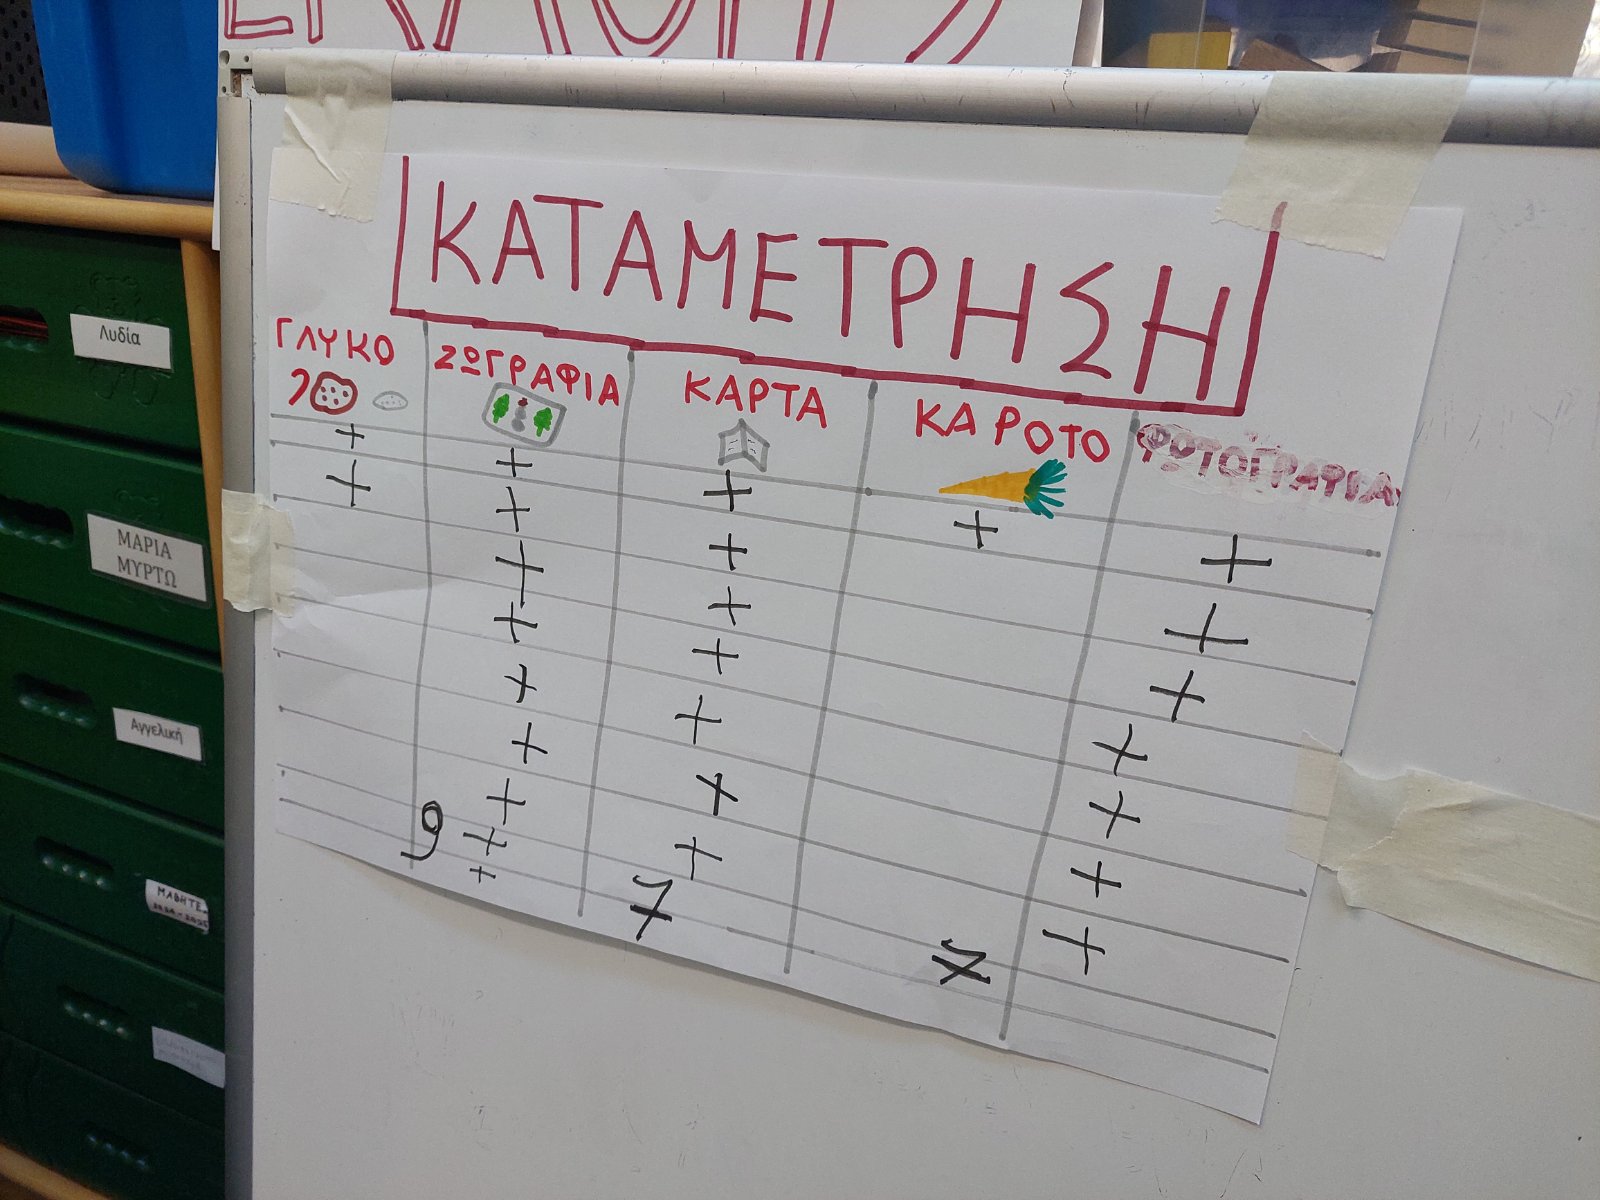 ΚΑΤΑΜΕΤΡΗΣΗ
ΓΛΥΚΟ ΖΩΓΡΑΦΙΑ ΚΑΡΤΑ ΚΑΡΟΤΟ ΦΩΤΟΓΡΑΦΙΑ
+ + + + +
+ + + +
+ + +
+ + +
+ + +
+ + +
+ + +
9 +
+
7
7
Λυδία
ΜΑΡΙΑ
ΜΥΡΤΩ
Αγγελική